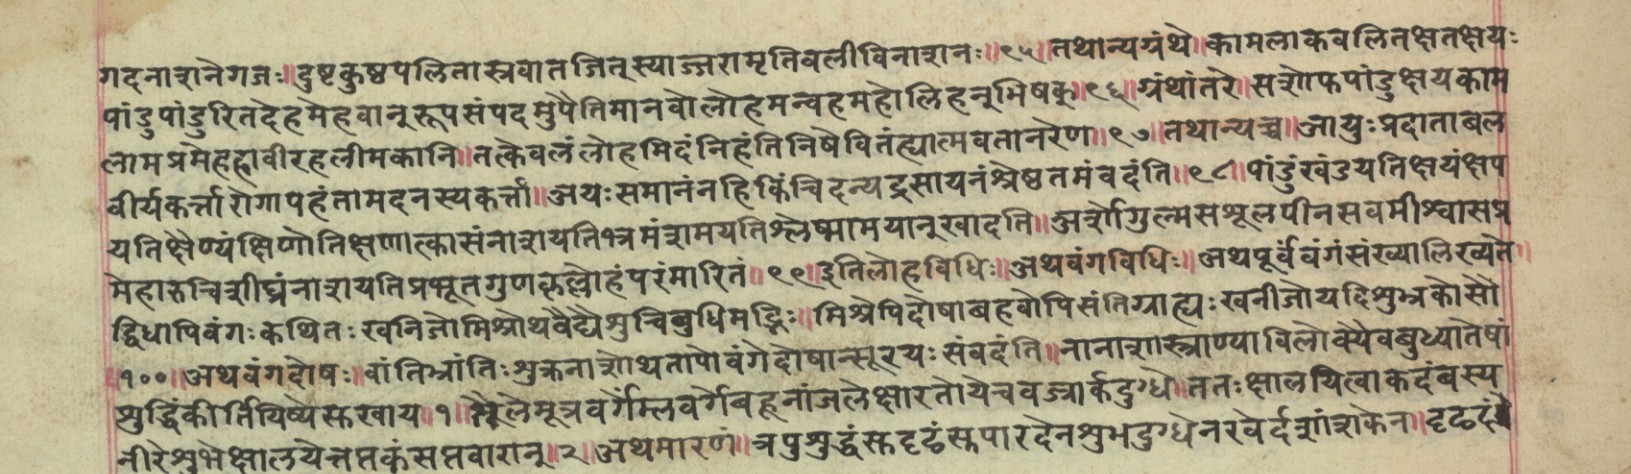 गदनाशनेगजः॥दुष्टकुष्ठपलितास्रवातजित्स्याज्जरामृतिवलीविनाशनः॥९५॥तथान्यग्रंथे॥कामलाकवलितक्षतक्षयः
पांडुपांडुरितदेहमेहवान्रूपसंपदमुपैतिमानवोलोहमन्वहमहोलिहन्भिषक्॥९६॥ग्रंथांतरे॥सशोफपांडुक्षयकाम
लामप्रमेहहृावीरहलीमकानि॥तत्केवलंलोहमिदंनिहंतिनिषेवितंह्यात्मवतानरेण॥९७॥तथान्यच्च॥आयुःप्रदाताबल
वीर्यकर्त्तारोगापहंतामदनस्यकर्त्ता॥अयःसमानंनहिकिंचिदन्यद्रसायनंश्रेष्ठतमंवदंति॥९८॥पांडुंखंडयतिक्षयंक्षप
यतिक्षैण्यंक्षिणोतिक्षणात्कासंनाशयतिभ्रमंशमयतिश्लेष्मामयान्खादति॥अर्शोगुल्मसशूलपीनसवमीश्वासप्र
मेहारुचिशीघ्रंनाशयतिप्रभूतगुणकृल्लोहंपरंमारितं॥९९॥इतिलोहविधिः॥अथवंगविधिः॥अथपूर्वंवंगंसंख्यालिख्यते॥
द्विधापिवंगःकथितःखनिजोमिश्रोथवैद्यैशुचिबुधिमद्भिः॥मिश्रेपिदोषाबहवोपिसंतिग्राह्यःखनीजोयदिशुभ्रकोसौ
॥१००॥अथवंगदोषः॥वांतिभ्रांतिःशुक्रनाशोथतापोवंगेदोषान्सूरयःसंवदंति॥नानाशास्त्राण्याविलोक्यैवबुध्यातेषां
शुद्धिंकीर्तियिष्येसखाय॥१॥तैलेमूत्रवर्गेम्लवर्गेबहूनांजलेक्षारतोयेचवज्रार्कदुग्धे॥ततःक्षालयित्वाकदंबस्य
नीरेशुभेक्षालयेत्तप्तकंसप्तवारान्॥२॥अथमारणं॥त्रपुशुद्धंसुदृढंसुपारदेनशुभदुग्धेनरवेर्दशांशकेन॥